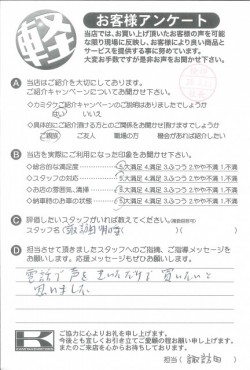 軽
お客様アンケート
当店では、お買い上げ頂いたお客様の声を可能
な限り現場に反映し、お客様により良い商品と
サービスを提供する事に努めています。
大変お手数ですが是非お声をお聞かせ下さい。
A 当店はご紹介を大切にしております。
ご紹介キャンペーンについてお聞かせ下さい。
・カミタケご紹介キャンペーンのご説明はありましたでしょうか
はい いいえ
・具体的にご紹介頂ける方とのご関係をお聞かせ頂けますでしょうか
ご親族 ご友人 職場の方 機会があれば紹介したい
B 当店を実際にご利用になった印象をお聞かせ下さい。
・総合的な満足度 5.大満足 4.満足 3.ふつう 2.やや不満 1.不満
・スタッフの対応 5.大満足 4.満足 3.ふつう 2.やや不満 1.不満
・お店の雰囲気、清掃 5.大満足 4.満足 3.ふつう 2.やや不満 1.不満
・納車時のお車の状態 5.大満足 4.満足 3.ふつう 2.やや不満 1.不満
C 評価したいスタッフがいれば教えてください。
スタッフ名(諏訪
D 担当させて頂きましたスタッフへのご指摘、ご指導メッセージを
お願いします。応援メッセージもぜひお願いします。
電話で声をきいたとき買いたいと
思いました
K
ご協力に心よりお礼を申し上げます。
今後とも宜しくお引き立てご愛顧の程お願い申し上げます。
またのご来店を心からお待ちしております。
担当(諏訪田)